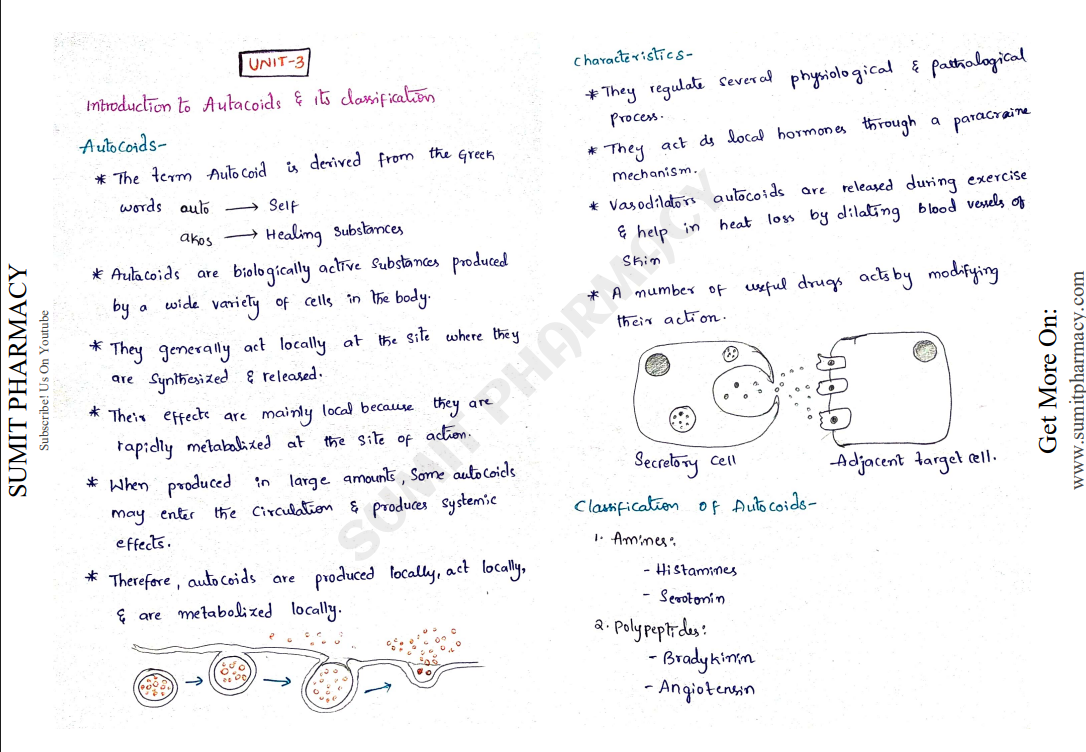 UNIT-3
Introduction to Autacoids & its classification
Autocoids-
* The term Autocoid is derived from the Greek
words auto ⟶ Self
akos ⟶ Healing Substances
* Autacoids are biologically active substances produced
by a wide variety of cells in the body.
* They generally act locally at the site where they
are synthesized & released.
* Their effects are mainly local because they are
rapidly metabolized at the site of action.
* When produced in large amounts, some autocoids
may enter the circulation & produces systemic
effects.
* Therefore, autocoids are produced locally, act locally,
& are metabolized locally.
Characteristics-
* They regulate several physiological & pathalogical
process.
* They act as local hormones through a paracraine
mechanism.
* Vasodilators autocoids are released during exercise
& help in heat loss by dilating blood vessels of
skin
* A number of useful drugs acts by modifying
their action.
Secretory cell
Adjacent target cell.
Classification of Autocoids-
1. Amines:
- Histamines
- Serotonin
2. Polypeptides:
- Bradykinin
- Angiotensin
SUMIT PHARMACY
Subscribe! Us On Youtube
Get More On:
www.sumitpharmacy.com
SUMIT PHARMACY